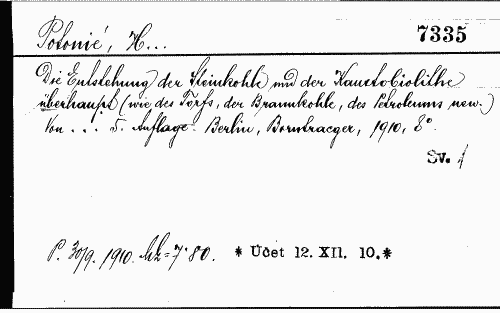 Potonié, H...
7335
Die Entstehung der Steinkohle und der Kaustobiolithe
überhaupt (wie des Torfs, der Braunkohle, des Petroleums usw.)
Von ... 5. Auflage. Berlin, Borntraeger, 1910, 8°.
Sv. 1
P. 30/9. 1910. Mk = 7·80. * Účet 12. XII. 10.*